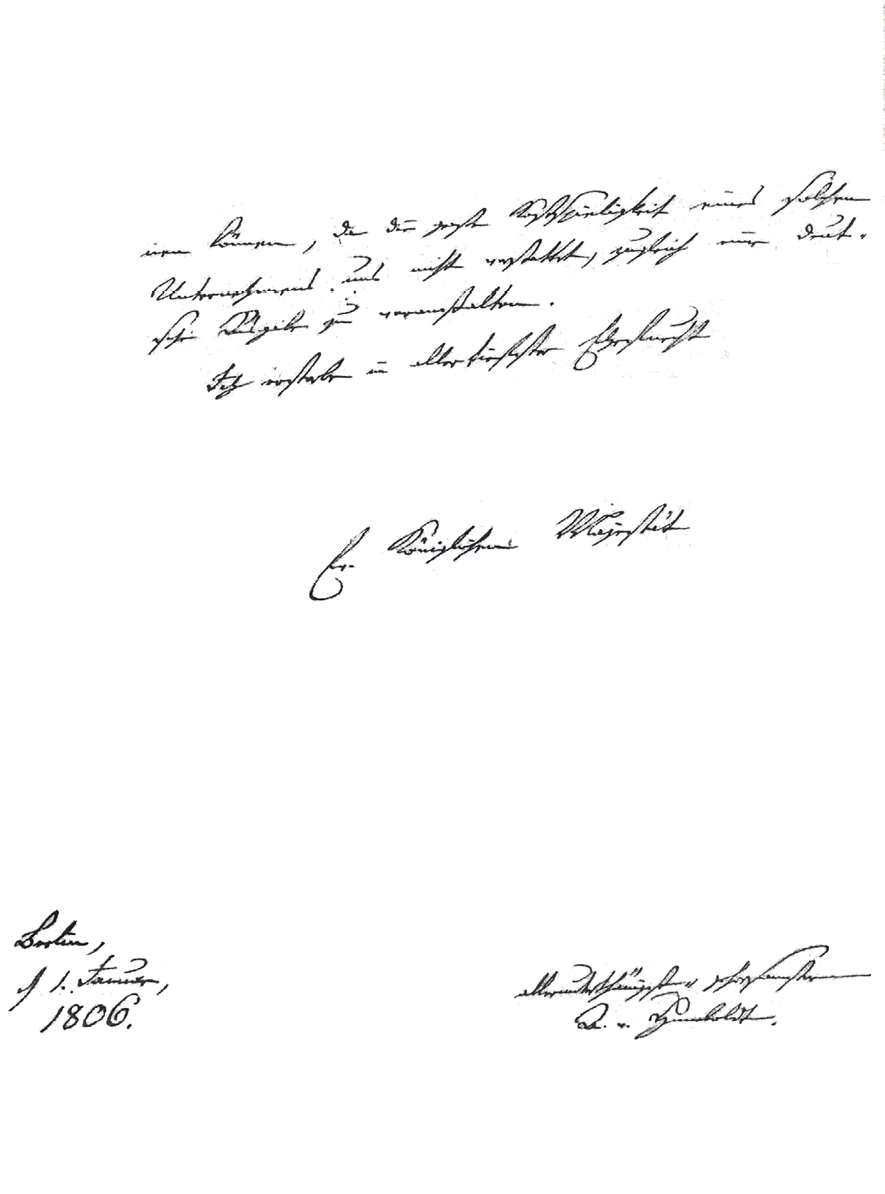 nen können, da die große Kostspieligkeit eines solchen
Unternehmens uns nicht verstattet, zugleich eine deut-
sche Ausgabe zu veranstalten.
Ich ersterbe in allertiefster Ehrfurcht
Ew. Königlichen Majestät
Berlin,
d 1. Januar,
1806.
allerunterthänigst gehorsamster
A. v. Humboldt.